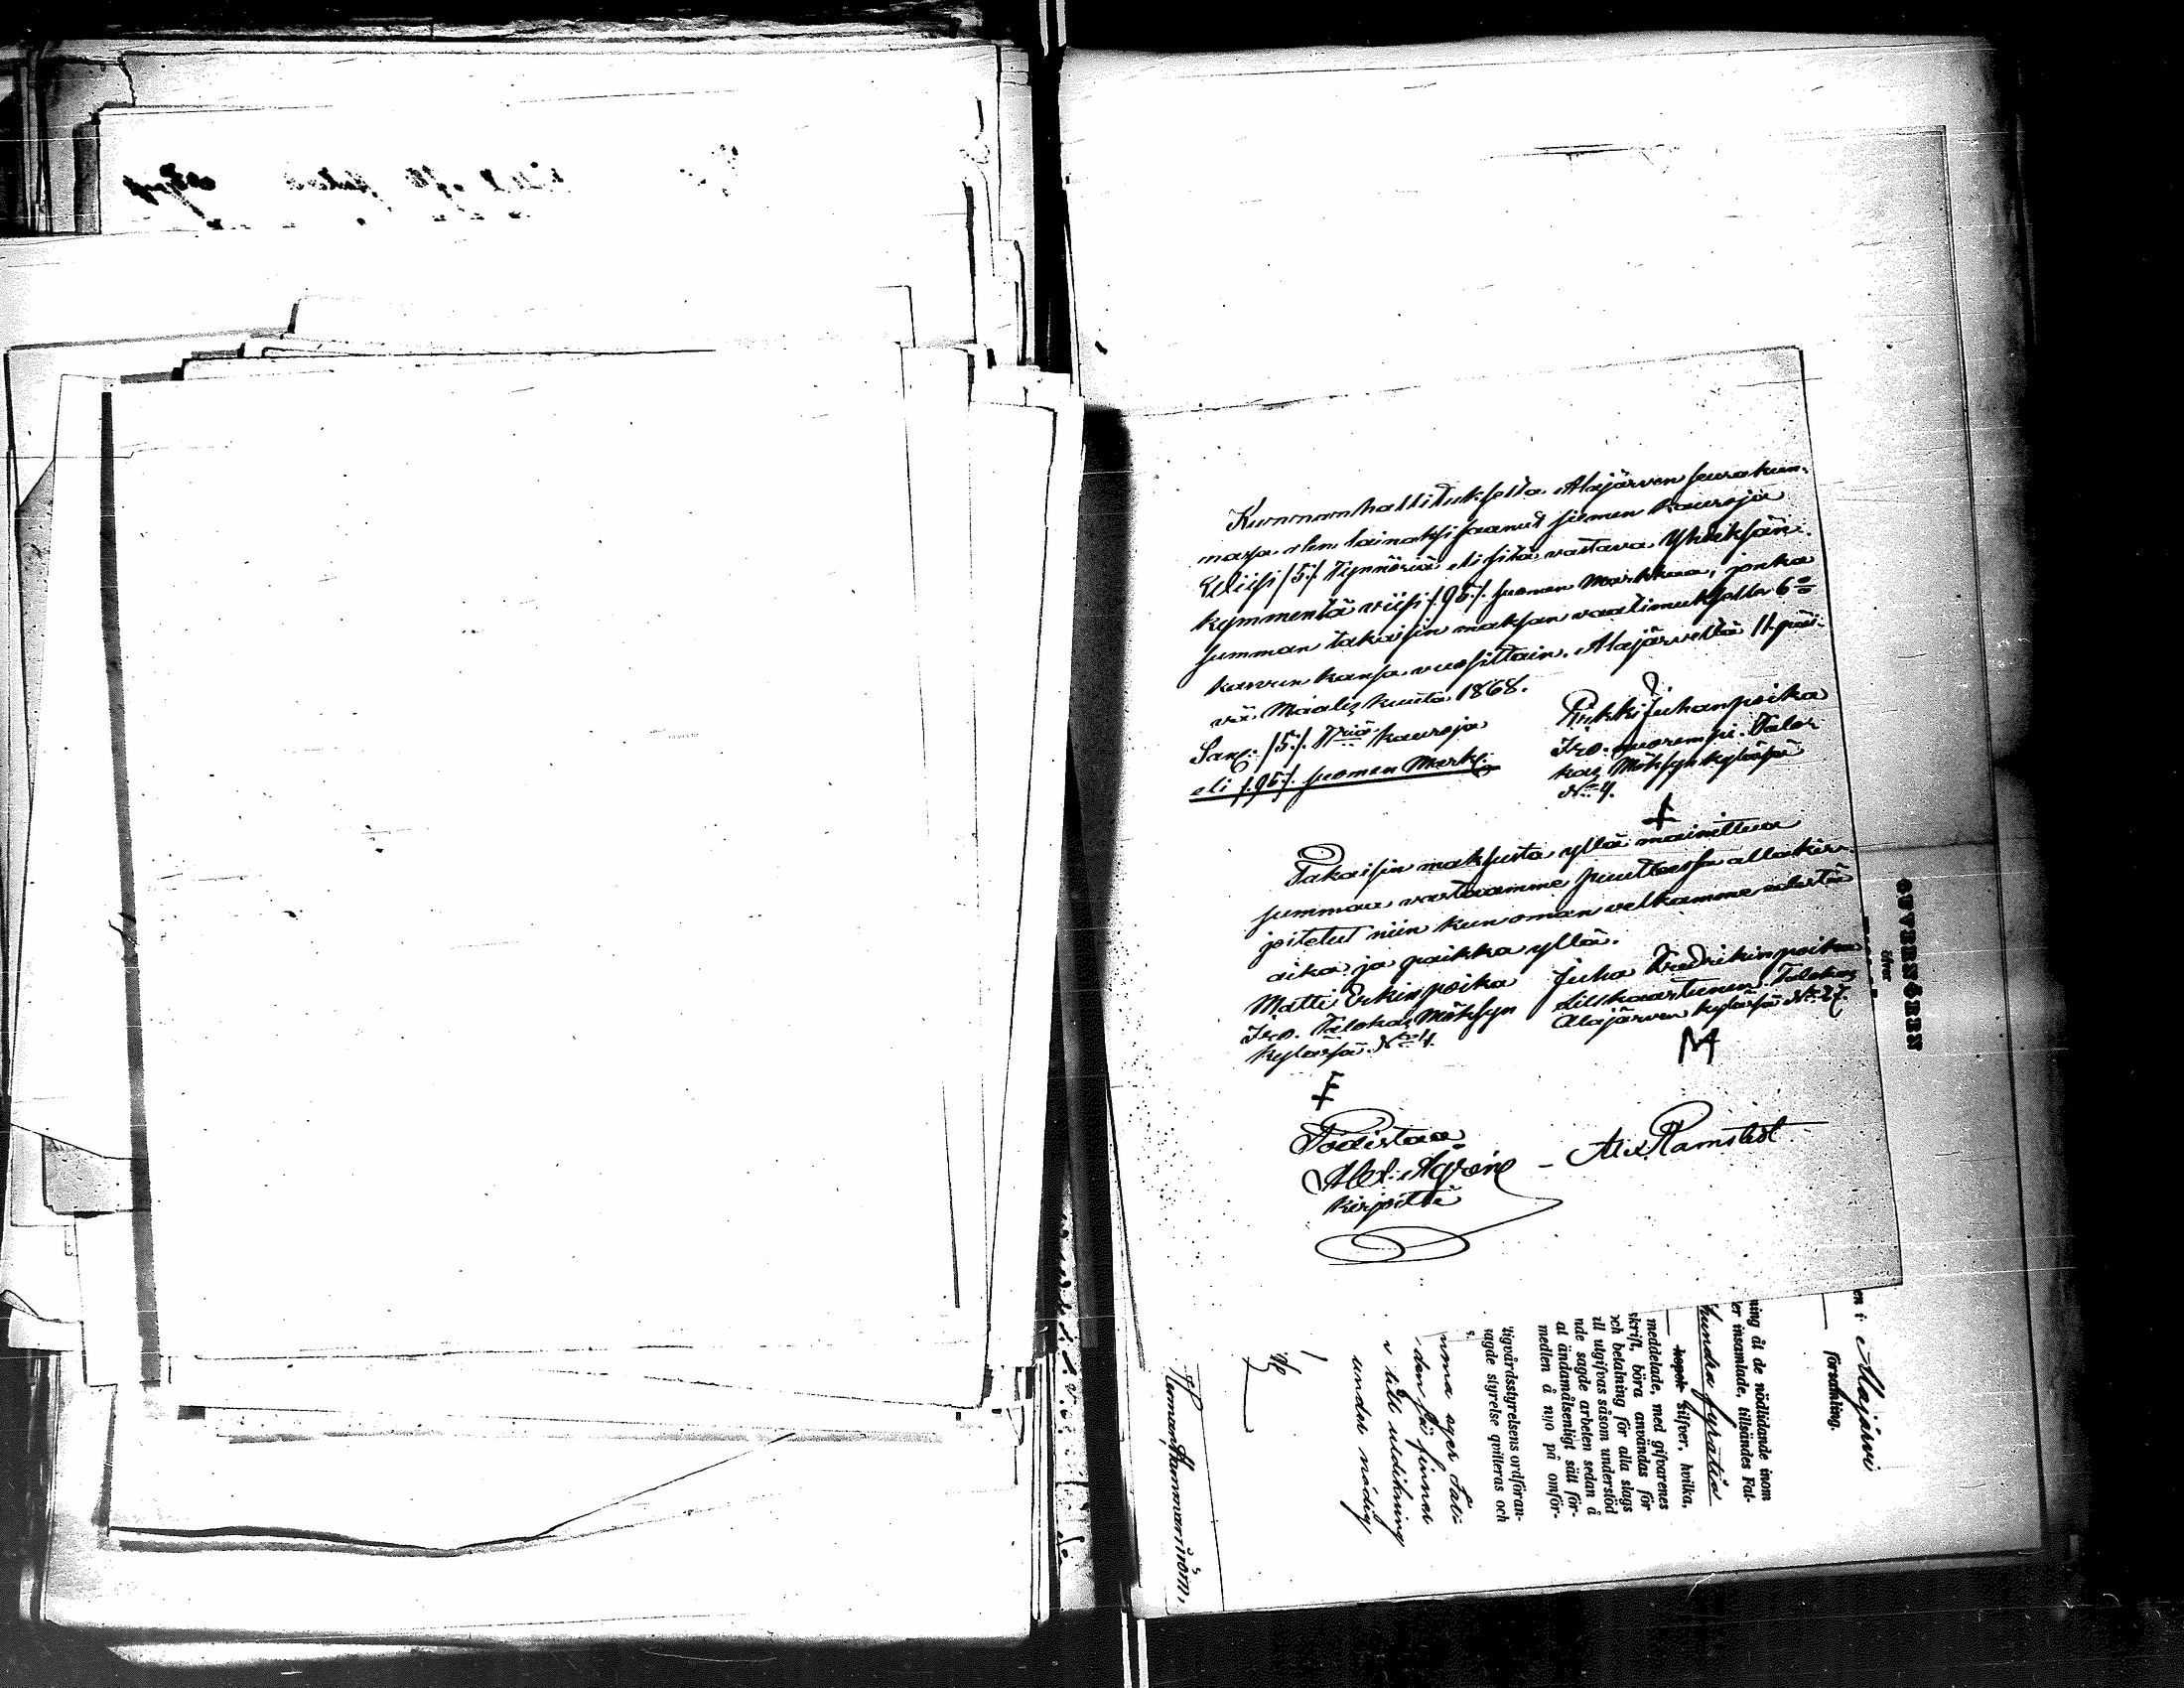 Kunnanhallitukselta Alajärven seurakun-
nassa olen lainaksi saanut siemen kauroja
Wiisi /5/. Tynnöriä eli sitä vastava Yhdeksän-
kymmentä viisi /.95./. suomen Markkaa, jonka
summan takaisin maksan vaatimuksella 6%
kasvun kansa vuosittain. Alajärveltä 11. päi-
vä Maalis kuuta 1868.
Sano: /5./. Triä kauroja
eli /.95/. suomen Mark:
Erikki Juhanpoika
Iso. nuorempi. Taloi
kas Möksyn kylässä
No 4.
Takaisin maksusta yllä mainittua
summaa vastaamme puuttessa allakir-
joitetut niin kun oman velkamme edestä
aika ja paikka yllä.
Matti Erkinpoika
Iso. Talokas Möksyn
kylässä No 4.
Juha Fredrikinpoika
Talokas
Alajärven kylässä No 27.
M
Todistaa
kirjoitti
Alex Ramstedt
GUVERNÖREN
öfver
en i Alajärvi
församling.
ning åt de nödlidande inom
er insamlade, tillsändes Fat-
hundra fyratio
kopek Silfver, hvilka,
meddelade, med gifvarenes
skrift, böra användas för
och betalning för alla slags
ill utgifvas såsom understöd
nde sagde arbeten sedan å
at ändamålsenligt sätt för-
medlen å nyo på omför-
tigvårdsstyrelsens ordföran-
sagde styrelse qvitteras och
under nödig
Herman Hammarström,